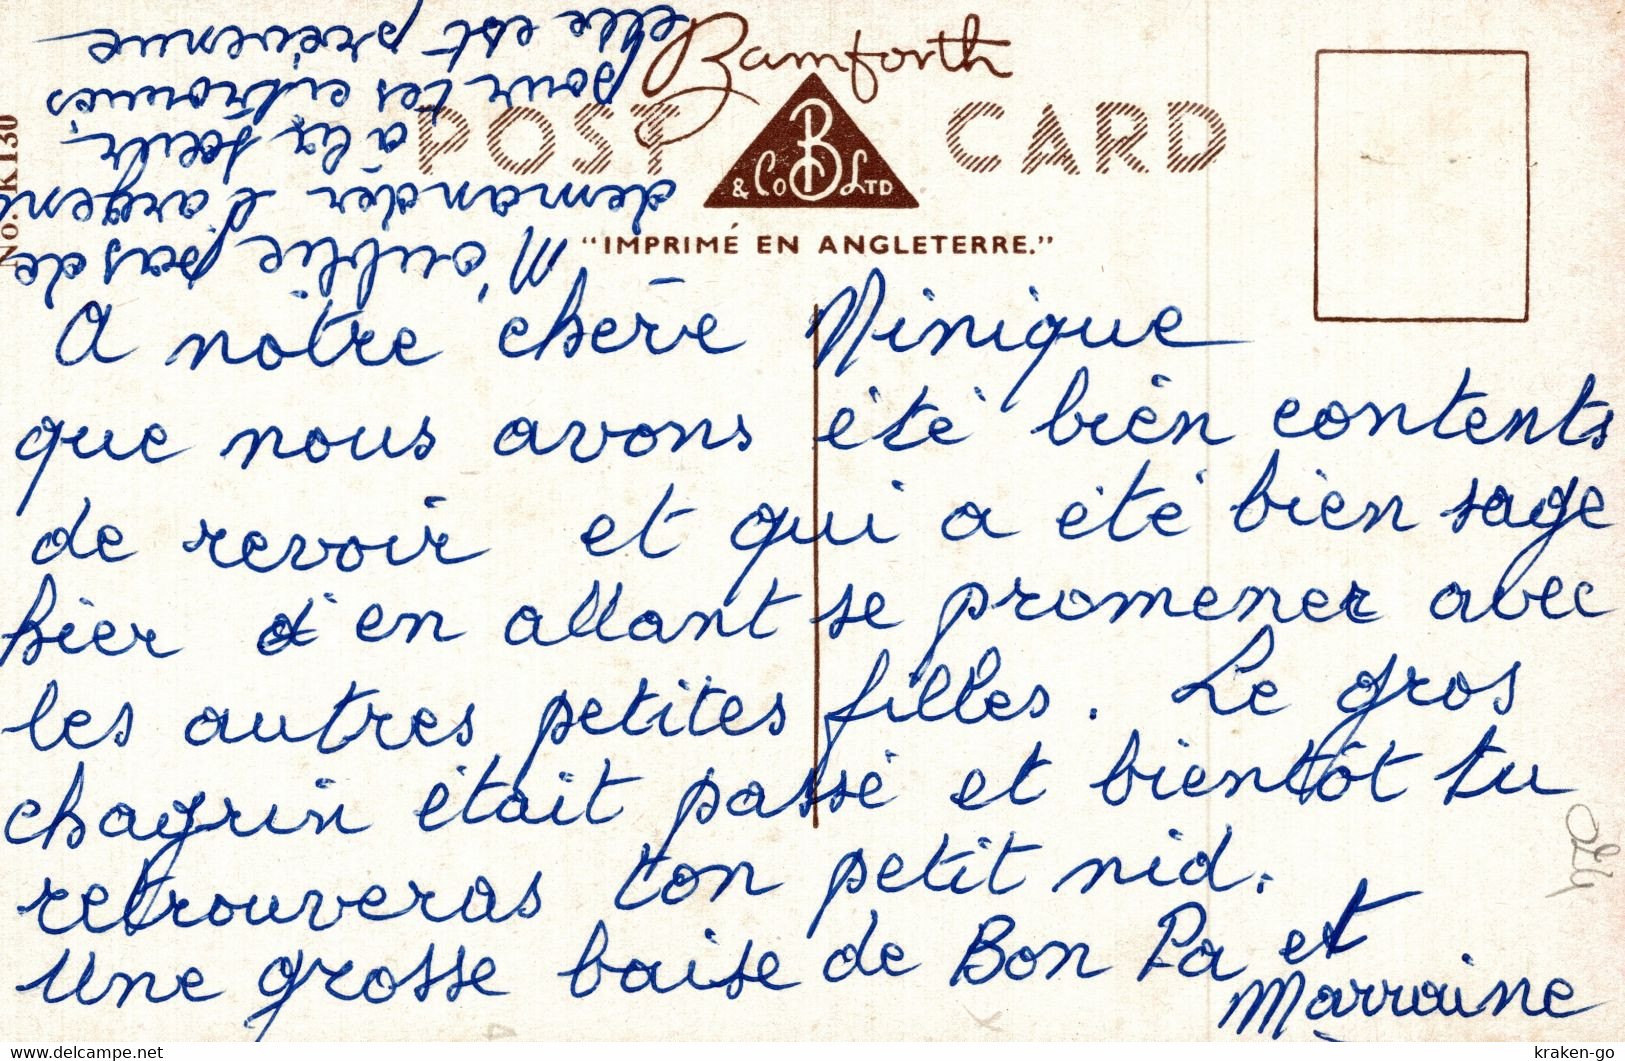 Bamforth
POST CARD
& Co LTD
"IMPRIMÉ EN ANGLETERRE."
No. K130
A nôtre chère Ninique
que nous avons été bien contents
de revoir et qui a été bien sage
hier d'en allant se promener avec
les autres petites filles. Le gros
chagrin était passé et bientôt tu
retrouveras ton petit nid.
Une grosse baise de Bon Pa et
Marraine
N'oublie pas de
demander l'argent
à la soeur,
pour tes citrons
elle est prévenue
www.delcampe.net
kraken-go